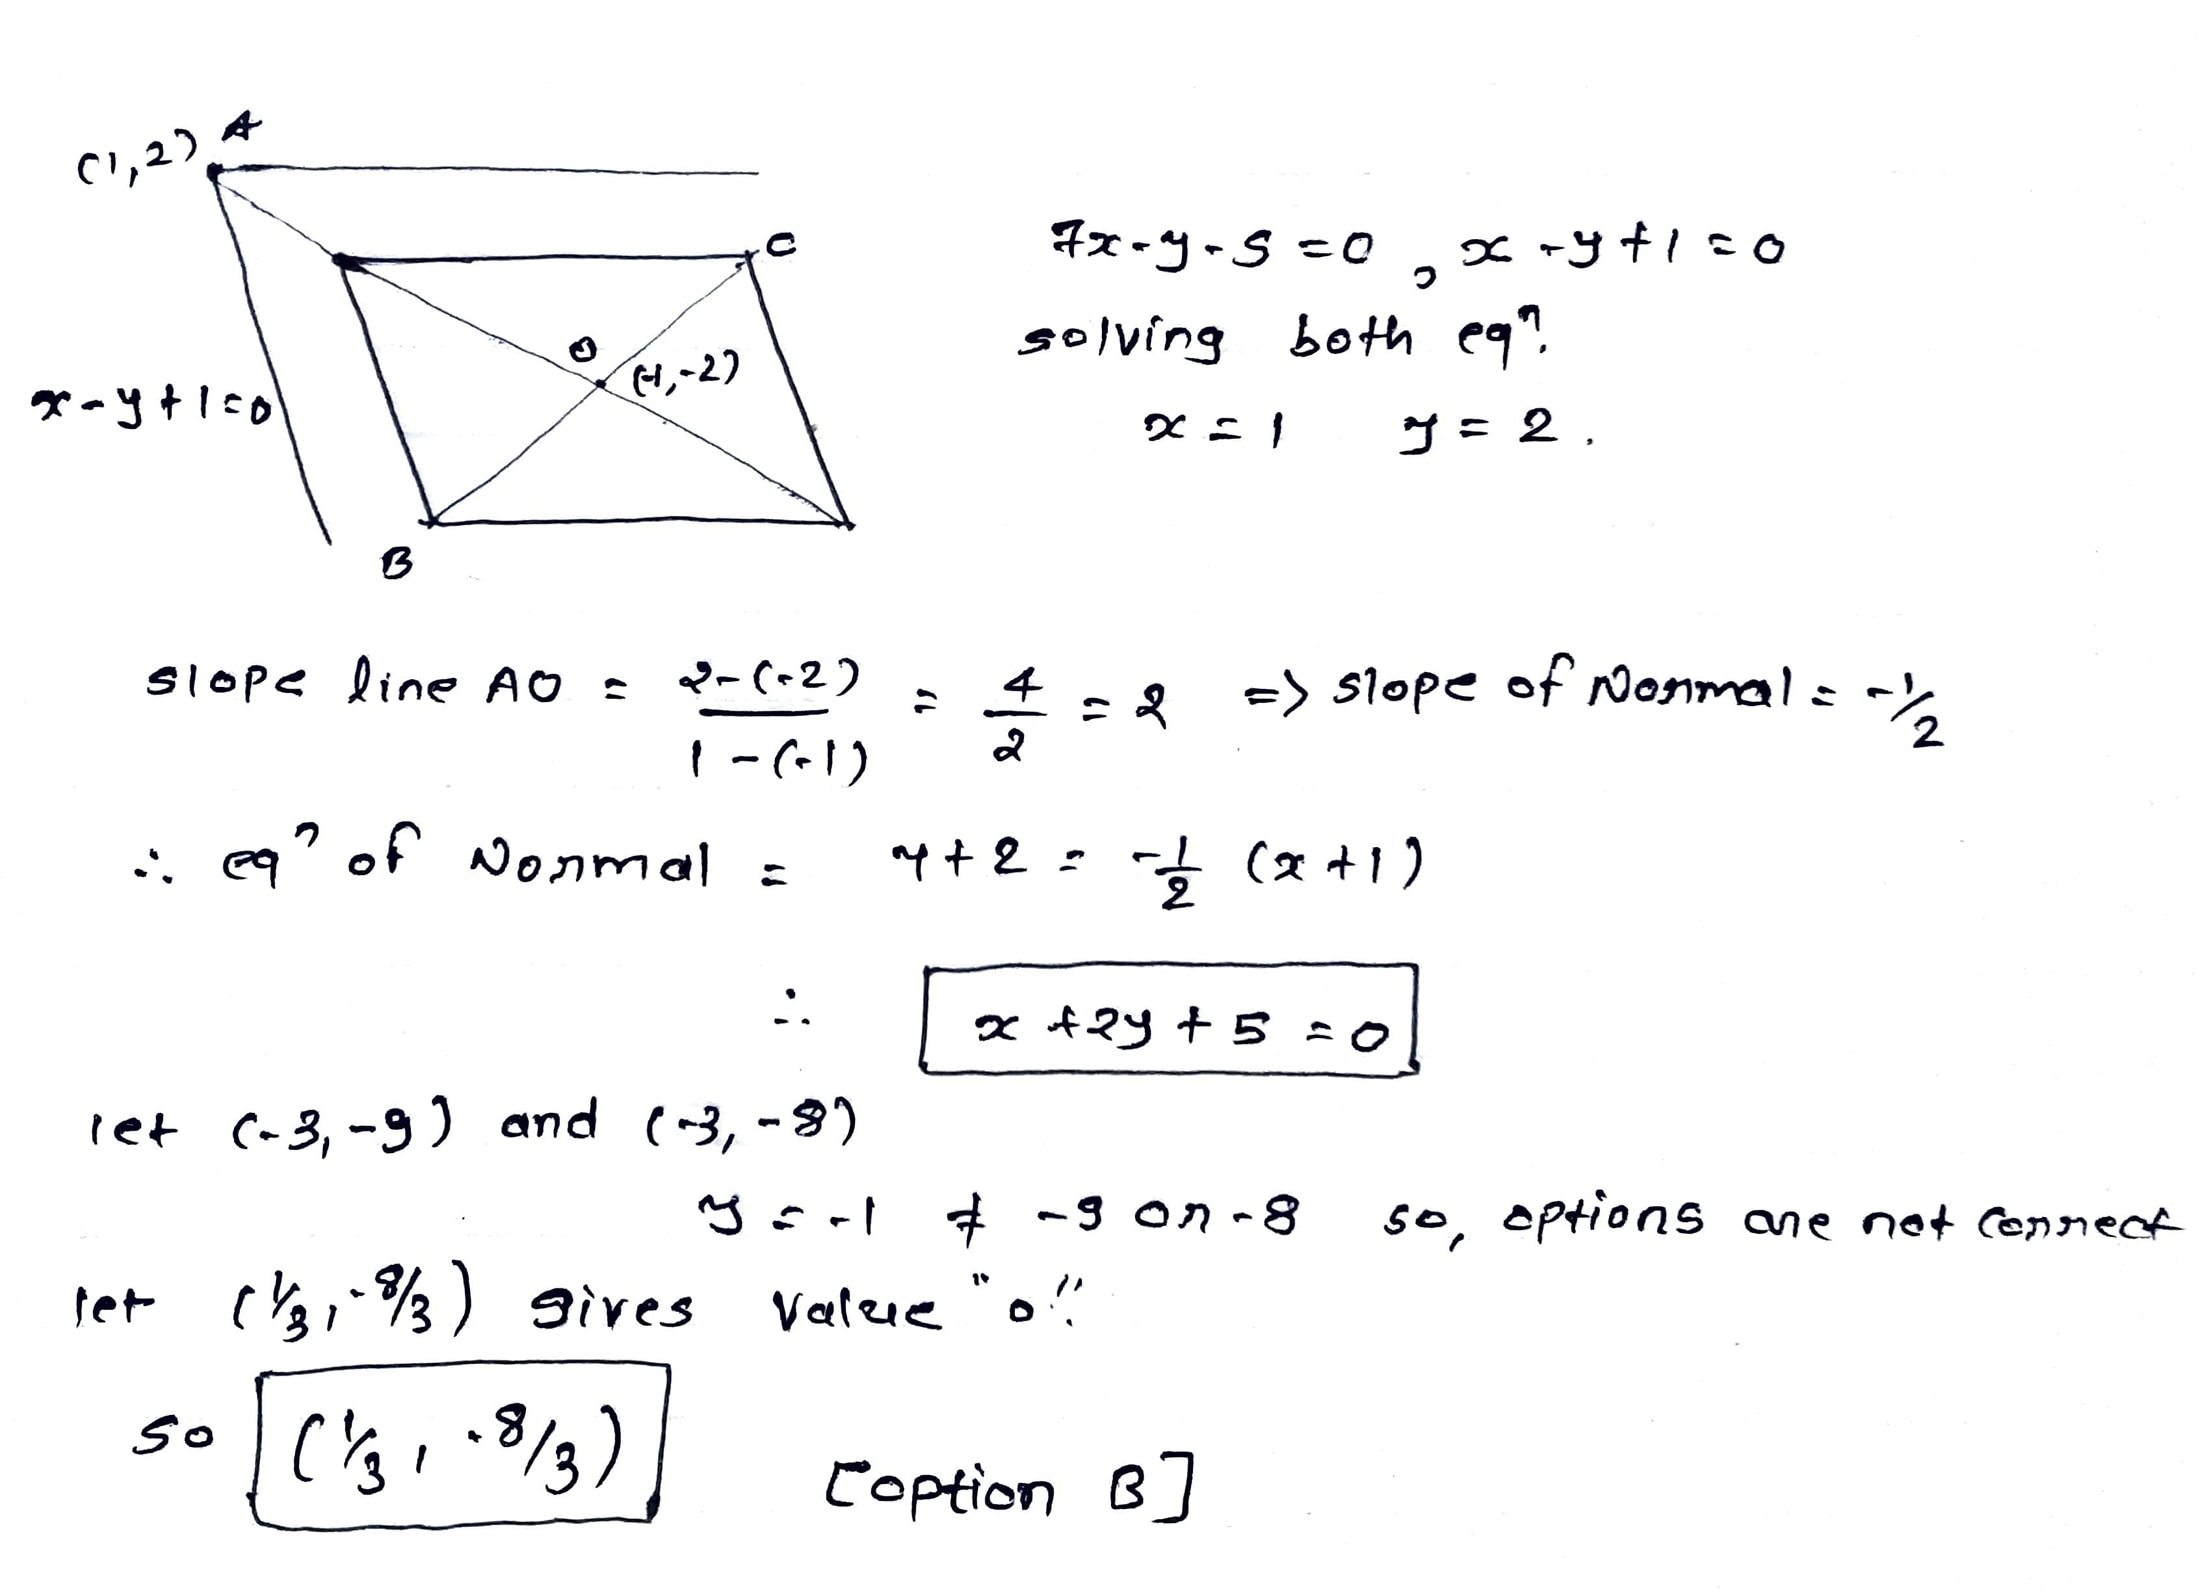 (1,2) A
C
O
(-1,-2)
x-y+1=0
B
7x-y-5=0, x-y+1=0
solving both eqⁿ.
x=1 y=2.
slope line AO = 2-(-2) / 1-(-1) = 4/2 = 2 => slope of Normal = -1/2
∴ eqⁿ of Normal = y+2 = -1/2 (x+1)
∴ x+2y+5=0
let (-3,-9) and (-3,-8)
y=-1 ≠ -9 or -8 so, options are not correct
let (1/3, -8/3) gives value "0".
so (1/3, -8/3) [option B]